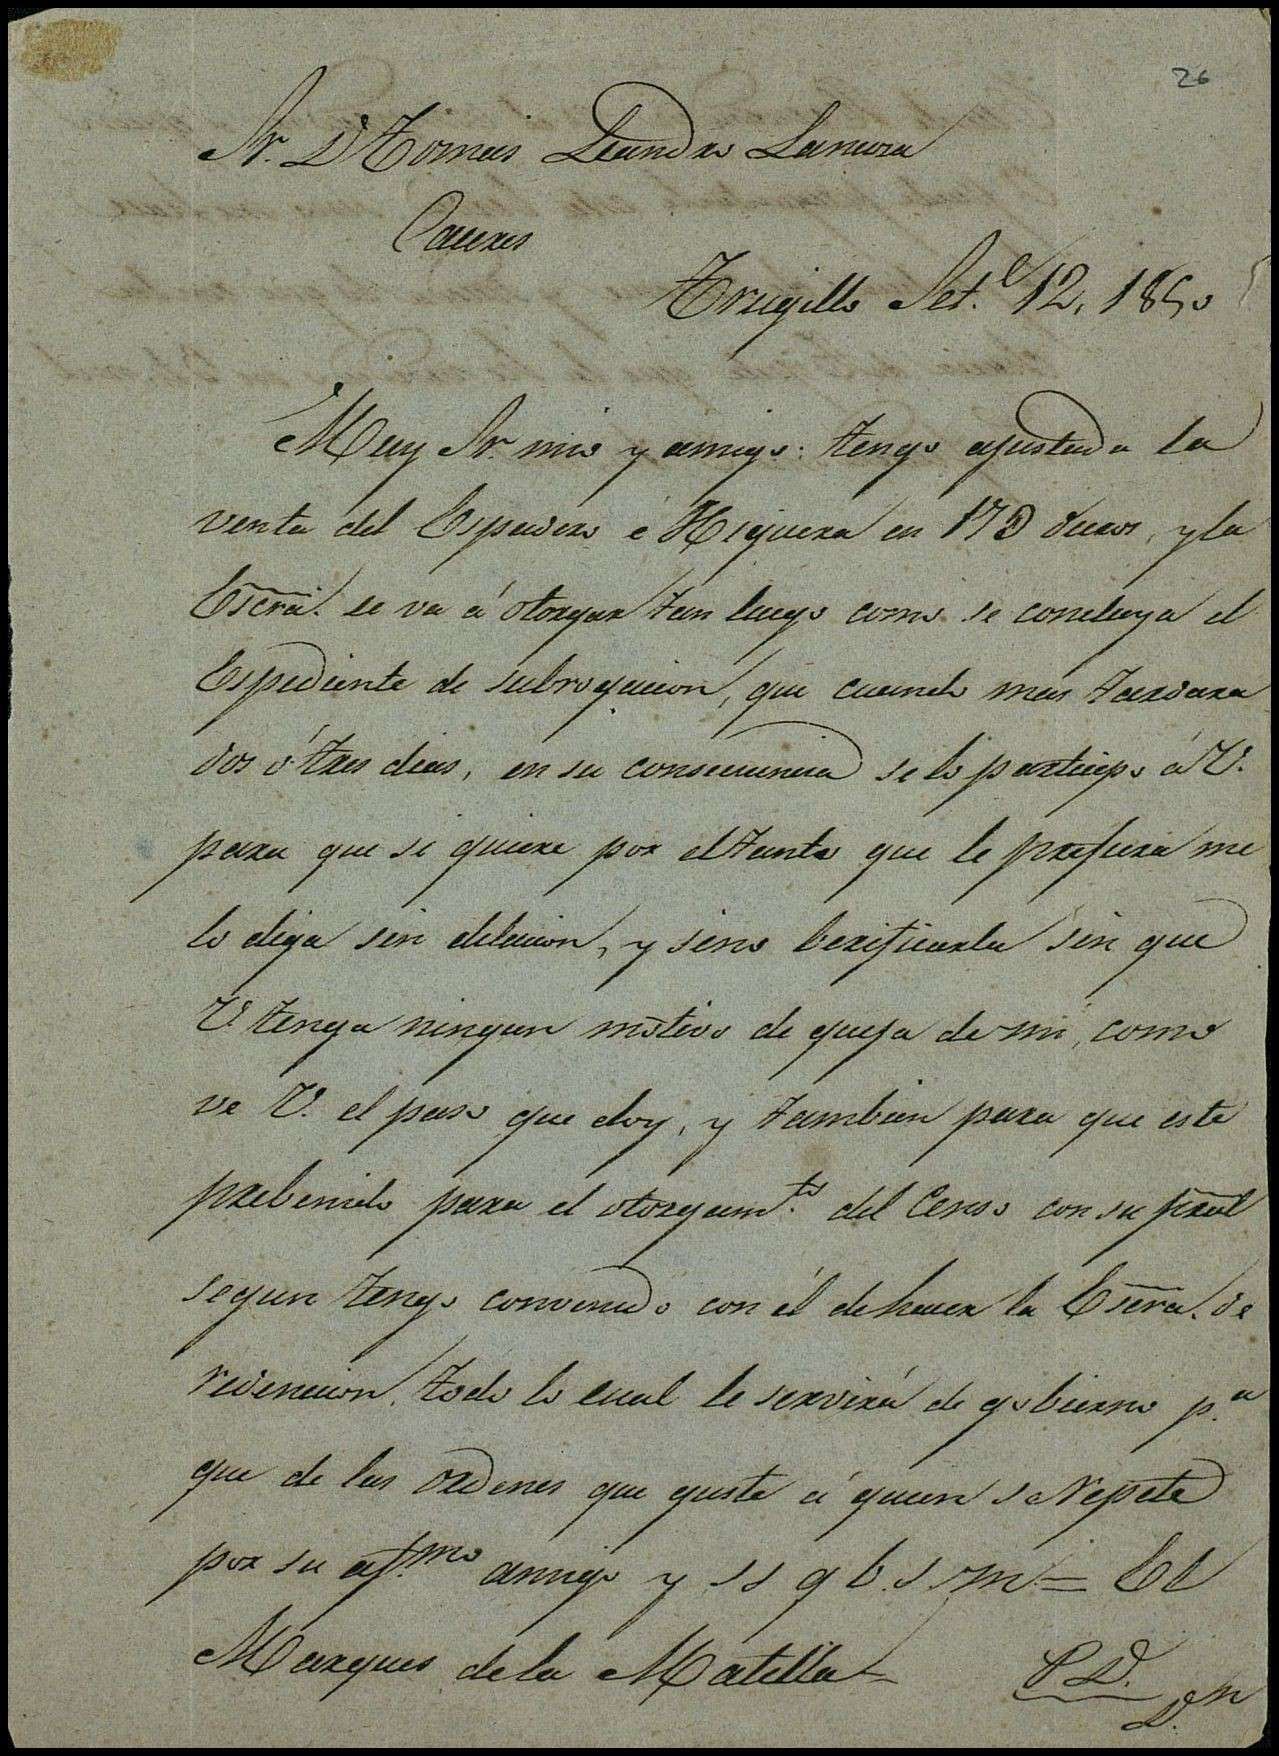 26
Sr. Dn Tomas Leandro Lanuza
Caceres
Trugillo Set.e 12, 1850
Muy Sr. mio y amigo: tengo ajustada la
venta del Espadero é Higuera en 17@ duros, y la
Escra. se va á otorgar tan luego como se concluya el
Espediente de subrogacion, que cuando mas tardara
dos ó tres dias, en su consecuencia se lo participo á V.
para que si quiere por el tanto que le prefiera me
lo diga sin dilacion, y sino berificarla sin que
V. tenga ningun motivo de queja de mi, como
ve V. el paso que doy, y tambien para que este
prebenido para el otorgam.to del Censo con su pral
segun tengo convenido con él de hacer la Escra. de
redencion, todo lo cual le servirá de gobierno p.a
que de las ordenes que guste á quien se Repete
por su af.mo amigo y s s q b. s m = El
Marques de la Matilla =
P. D.